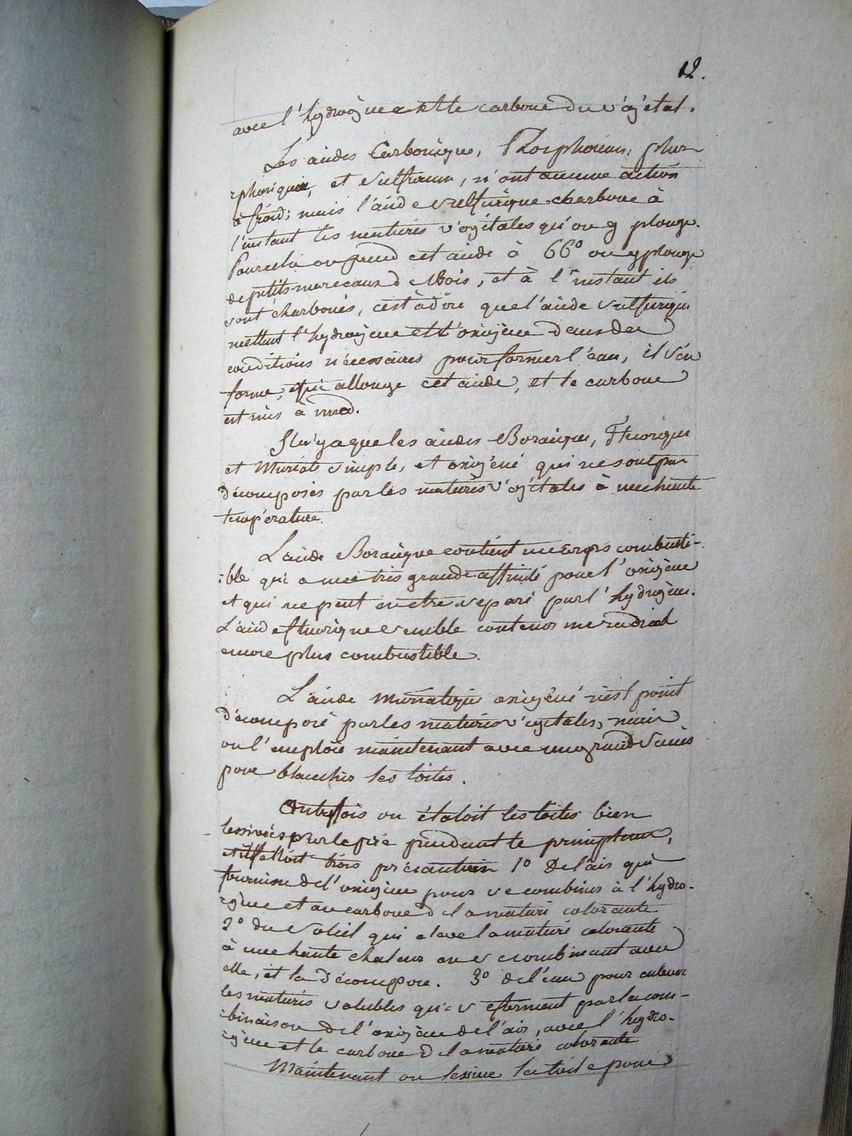 12.
avec l'hydrogène et le carbone du végétal.
Les acides Carbonique, Phosphoreux, phos-
phorique, et sulfureux, n'ont aucune action
à froid; mais l'acide sulfurique charbone à
l'instant les matières végétales qu'on y plonge.
Pour cela on prend cet acide à 66° on y plonge
de petits morceaux de Bois, et à l'instant ils
sont charbonés, c'est à dire que l'acide sulfurique
mettant l'hydrogène et l'oxigène dans des
conditions nécessaires pour former l'eau, il s'en
forme, qui allonge cet acide, et le carbone
est mis à nud.
Il n'y a que les acides Boracique, Fluorique
et Muriate simple, et oxigéné qui ne sont pas
décomposés par les matières végétales à une haute
température.
L'acide Boracique contient un corps combusti-
:ble qui a une très grande affinité pour l'oxigène
et qui ne peut en etre séparé par l'hydrogène.
L'acide fluorique semble contenir un radical
encore plus combustible.
L'acide muriatique oxigéné n'est point
décomposé par les matières végétales, mais
on l'emploie maintenant avec un grand succès
pour blanchir les toiles.
Autrefois on étaloit les toiles bien
lessivées sur le pré pendant le printemps,
et il falloit trois précautions 1° De l'air qui
fournisse de l'oxigène pour se combiner à l'hydro-
gène et au carbone de la matière colorante
2° du soleil qui eleve la matière colorante
à une haute chaleur en se combinant avec
elle, et la décompose. 3° de l'eau pour enlever
les matières solubles qui se forment par la com-
binaison de l'oxigène de l'air, avec l'hydro-
gène et le carbone de la matière colorante
Maintenant on lessive la toile pour